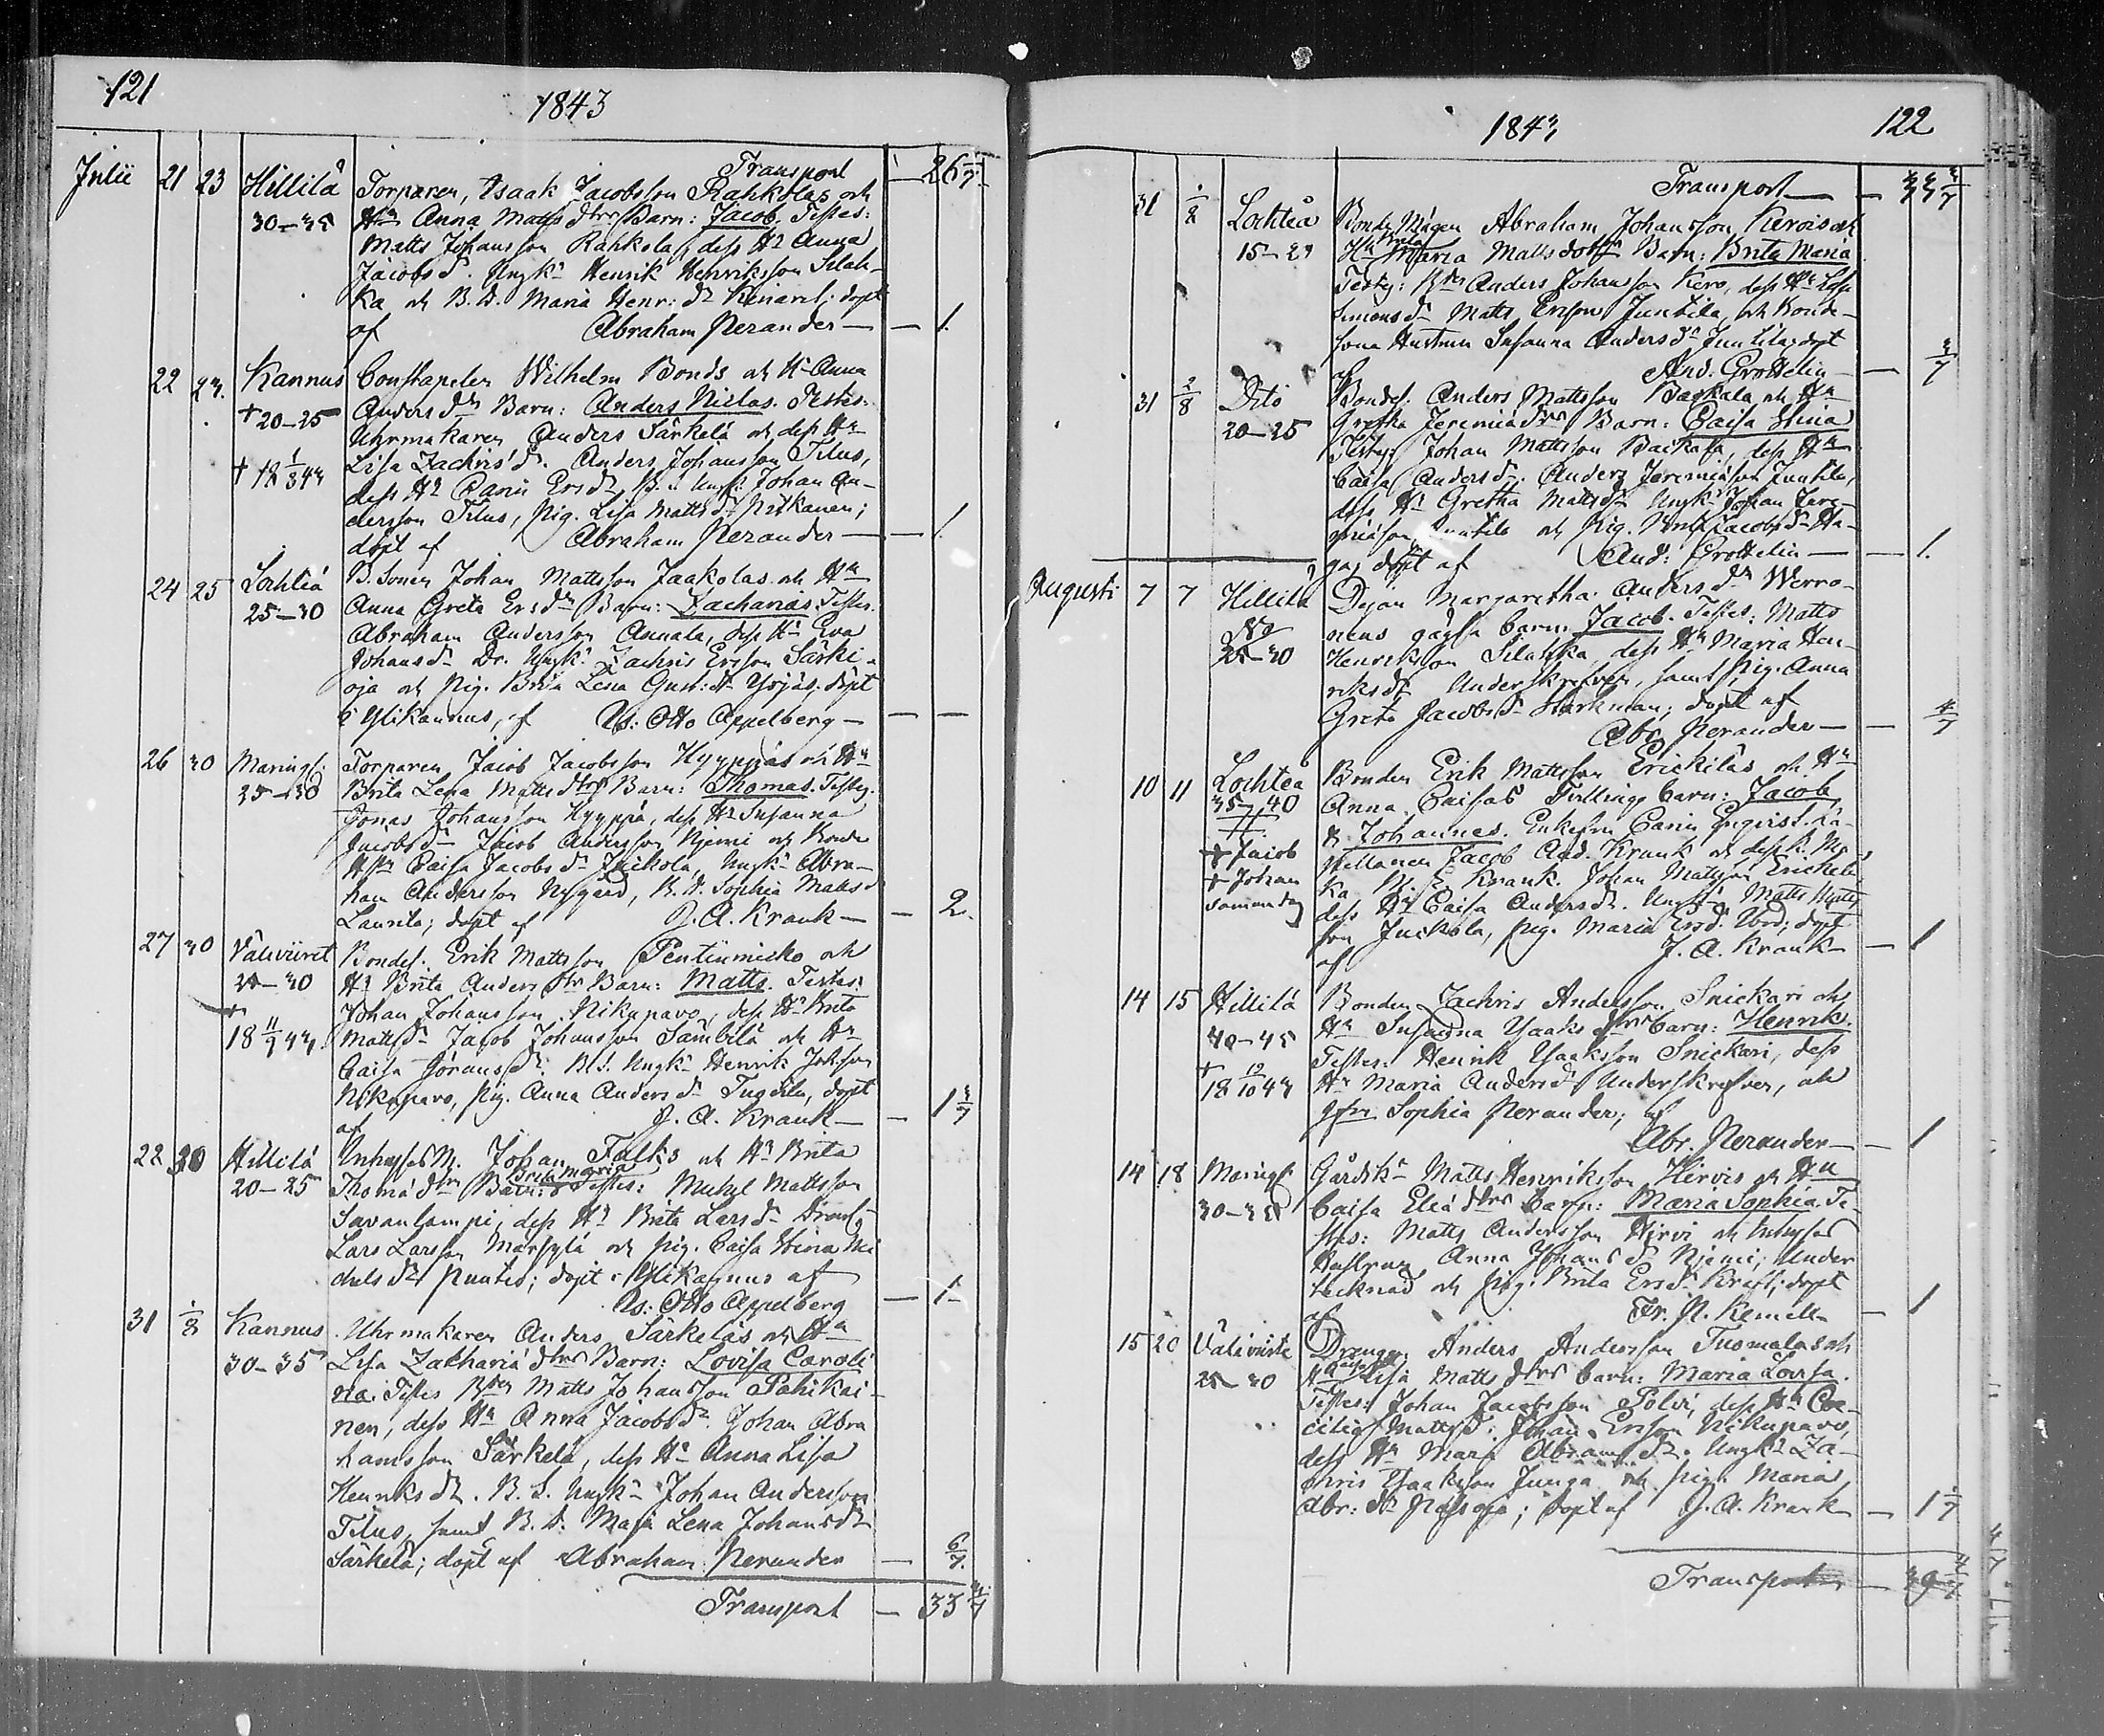 121
1843
Transport — 26
Julii 21 23 Hillilä Torparen, Isaak Jacobsson Rahkolas och
30–35 Hu Anna Matts dtrs Barn: Jacob. Testes:
Matts Johansson Rahkola, dess Hu Anna
Jacobs dr. Ungk: Henrik Henriksson Silah-
ka och B. D. Maria Henr: dr dopt
af Abraham Perander — 1.
22 23. Kannus Constapelen Wilhelm Bonds och Hu Anna
+20–25 Anders dtrs Barn: Anders Niclas. Testes:
Uhrmakaren Anders Särkelä och dess Hu
+ 18 1/8 43 Lisa Zachris dr. Anders Johansson Tilus,
dess Hu Carin Ers dr, B. Ungk: Johan An-
dersson Tilus, Pig. Lisa Matts dr Pitkänen;
döpt af Abraham Perander — 1.
24 25 Lochteå B. Sonen Johan Mattsson Jaakolas och Hu
25–30 Anna Greta Ers dtrs Barn: Zacharias. Testes:
Abraham Andersson Annala, dess Hu Eva
Johans dr Dr. Ungk: Zachris Ersson Särki-
oja och Pig. Brita Lena Gust: dr Yrjäs. döpt
i Ylikannus, af Ns: Otto Appelberg —
26 30 Maringsf: Torparen Jacob Jacobsson Hyyppäs och Hu
25–30 Brita Lena Matts dtrs Barn: Thomas. Testes:
Jonas Johansson Hyyppä, dess Hu Susanna
Jacobs dr Jacob Andersson Njemi och Bonde
Hstr Caisa Jacobs dr Juckola, Ungk: Abra-
ham Andersson Nygård, B. D. Sophia Matts dr
Laurila; döpt af J. A. Krank — 2.
27 30 Väliviiret Bondes. Erik Mattsson Pentinmicko och
25–30 Hu Brita Anders dtr Barn: Matts. Testes:
+ Johan Johansson Nikupavo, dess Hu Brita
18 11/9 43. Matts dr Jacob Johansson Sämbilä och Hu
Caisa Görans dr. B. S. Ungk: Henrik Johsson
Nikupavo, Pig. Anna Anders dr döpt
af J. A. Krank — 1 3/7
22 30 Hillilä Inhyses M. Johan Falks och Hu Brita
20–25 Thomä dtrs Barn: Brita Maria Testes: Michel Mattsson
Savonlampi, dess Hu Brita Lars dr
Lars Larsson Märsylä och Pig. Caisa Stina Mi
chels dr Puutio; döpt i Ylikannus af
Ns: Otto Appelberg — 1
31 1/8 Kannus Uhrmakaren Anders Särkeläs och Hu
30–35 Lisa Zachariä dtrs Barn: Lovisa Caroli
na. Testes Matts Johansson Pahikai-
nen, dess Hu Anna Jacobs dr. Johan Abra
hamsson Särkelä, dess Hu Anna Lisa
Henriks dr. B. S. Ungk: Johan Andersson
Tilus, samt B. D. Maja Lena Johans dr
Särkelä; döpt af Abraham Perander — 6/7.
Transport — 33
1843
122
Transport —
31 1/8 Lochteå Bonde Mågen Abraham Johansson Kerois och
15–2 Hu Brita Maria Matts dotters Barn: Brita Maria
Testes: Anders Johansson Kero, dess Hu Lisa
Simons dr Matts Ersson Juntila, och Bonde-
sona Hustrun Susanna Anders dr Juntila, döpt
af And. Grottelin — 3/7
31 2/8 Dito Bondes. Anders Mattsson Backala och Hu
20–25 Gretha Jeremiä dtrs Barn: Caisa Stina
Testes: Johan Mattsson Backala, dess Hu
Caisa Anders dr. Anders Jeremiasson Juntila,
dess Hu Gretha Matts dr Ungk: Johan Jere-
miasson Juntila och Pig. Jacobs dr Ha-
ga; döpt af And: Grottelin — 1.
Augusti 7 7 Hillilä Dejan Margaretha Anders dr Werro-
nens oägta barn: Jacob. Testes: Matts
25–30 Henriksson Silahka, dess Hu Maria Hen-
riks dr Underskrefven, samt Pig. Anna
Greta Jacobs dr Starkman; döpt af
Abr. Perander — 4/7
10 11 Lochteå Bonden Erik Mattsson Erickiläs och Hu
35–40 Anna Caisas Tvillinge barn: Jacob
+ Jacob & Johannes. Enkefru Carin Enqvist. Lä-
+ Johan Jacob And. Krank och dess k. Ma
samma dag ka M. E. Krank. Johan Mattsson Erickilä
dess Hu Caisa Anders dr. Ungk: Matts Matts
son Juckola, Pig. Maria Ers dr. döpt
af J. A. Krank — 1
14 15 Hillilä Bonden Zachris Andersson Snickari och
40–45 Hu Susanna Ysaks dtrs barn: Henrik.
+ Testes: Henrik Ysaksson Snickari, dess
18 12/10 43 Hu Maria Anders dr Underskrefven, och
Sophia Perander; af
Abr. Perander — 1
14 18 Maringf: Gårdsk: Matts Henriksson Hirvis och Hu
30–35 Caisa Eliä dtrs barn: Maria Sophia. Te-
stes: Matts Andersson Hirvi och Inhyses
Hustrun Anna Johans dr Njemi; Under
tecknad och Pig. Brita Ers dr Kreft; döpt
af Fr. A. Kemell — 1
15 20 Väliviirte Drengen Anders Andersson Tuomalas och
25–30 Hu Caisa Lisa Matts dtrs barn: Maria Lovisa.
Testes: Johan Jacobsson Pölvi, dess Hu Cae-
cilia Matts dr. Johan Ersson Nikupavo,
dess Hu Maria Abrams dr. Ungk: Za-
chris Ysaksson Junga och Pig. Maria
Abr: dr döpt af J. A. Krank — 1 1/7
Transport — 39